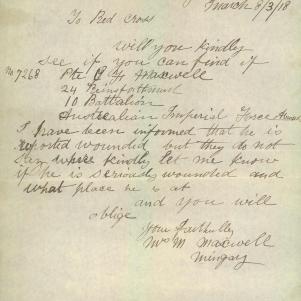 March 8/3/18
To Red Cross
will you kindly
see if you can find if
No 7268 Pte Maxwell
24 Reinforthment
10 Battalion
Australian Imperial Force
I have been informed that he is
reported wounded but they do not
say where kindly let me know
if he is seriously wounded and
what place he is at
and you will
oblige
your faithfully
Mrs M. Maxwell
Mingary